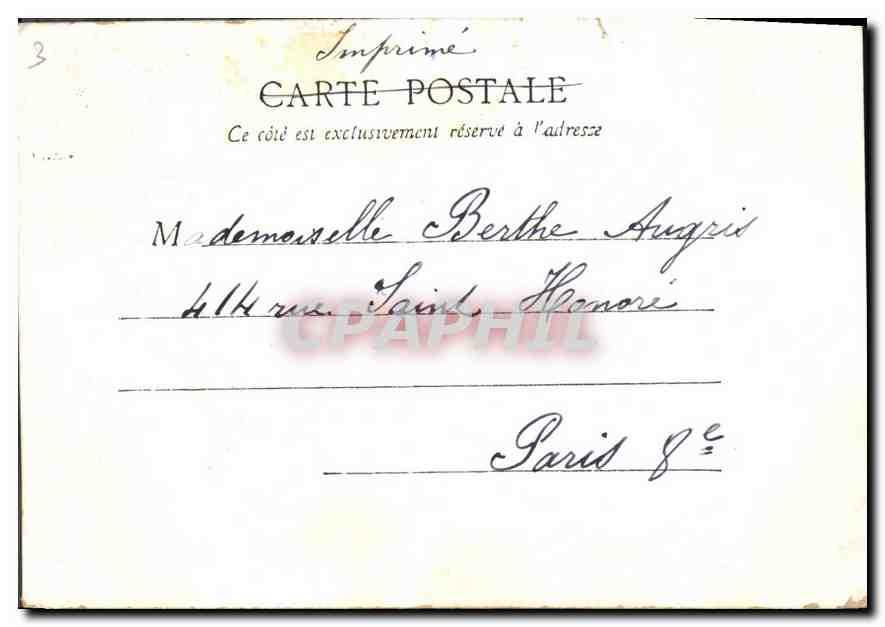 3
Imprimé
CARTE POSTALE
Ce côté est exclusivement réservé à l'adresse
Mademoiselle Berthe Augris
414 rue Saint Honoré
CPAPHIL
Paris 8e